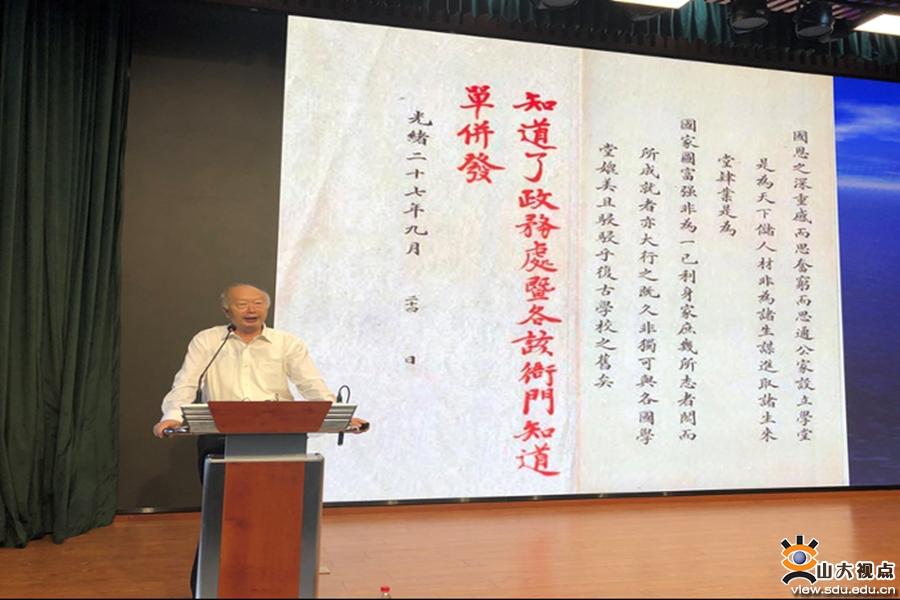 國恩之深重感而思奮窮而思通公家設立學堂
是為天下儲人材非為諸生謀進取諸生來
堂肄業是為
國家圖富强非為一己利身家庶幾所志者閎而
所成就者亦大行之既久非獨可與各國學
堂媲美且駸駸乎復古學校之舊矣
知道了政務處暨各該衙門知道
單併發
光緒二十七年九月二十四日
山大视点
view.sdu.edu.cn